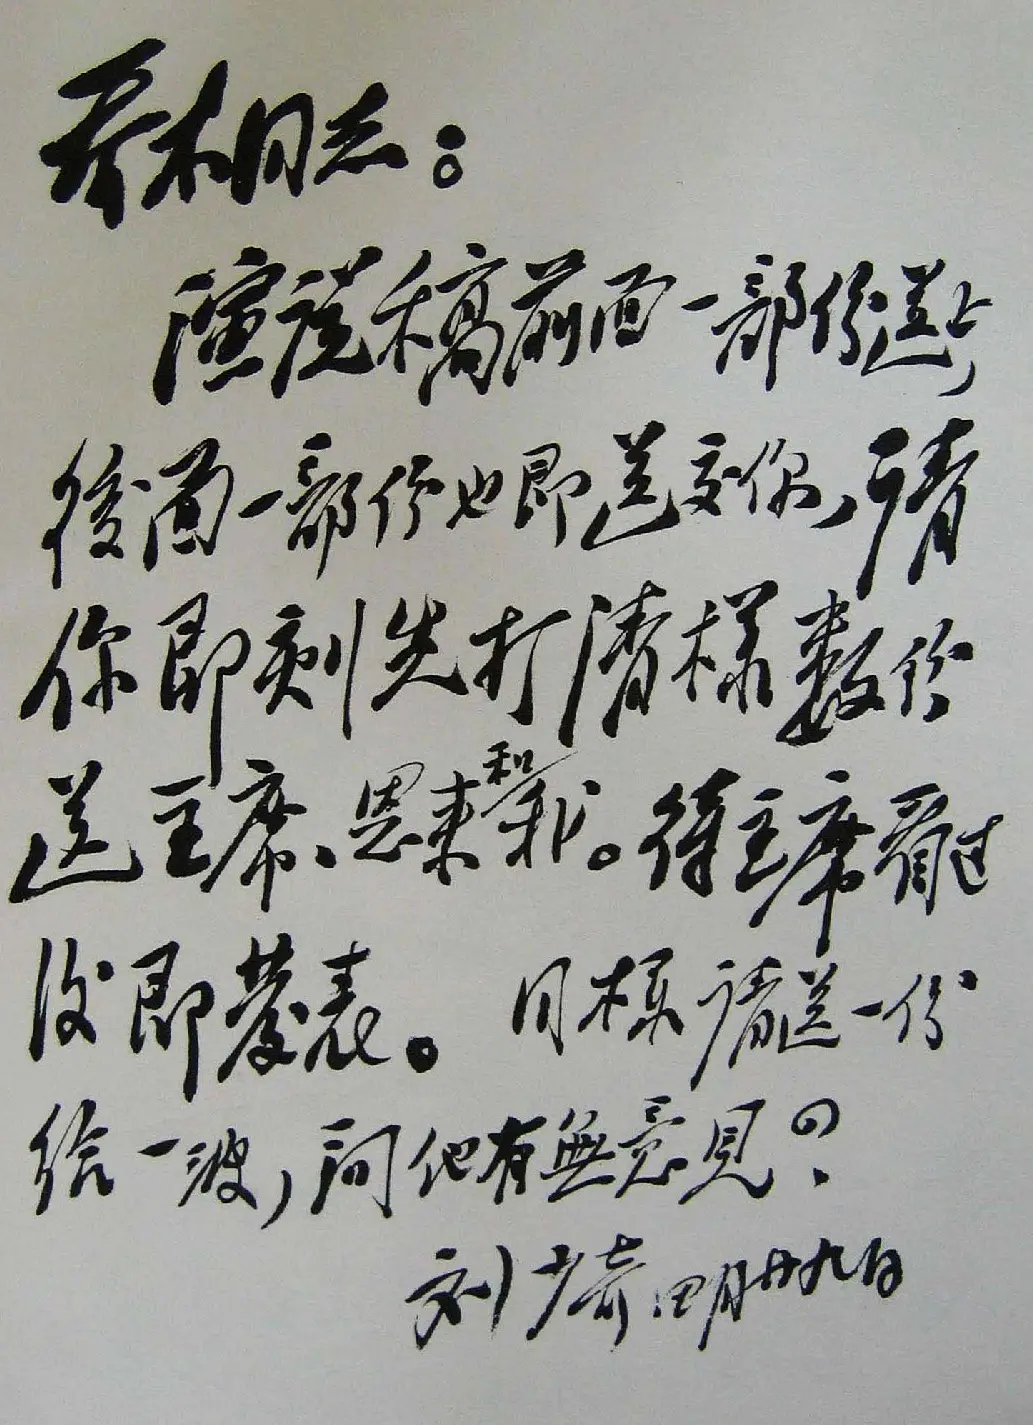 乔木同志：
演说稿前面一部份送上，
後面一部份也即送交你，请
你即刻先打清様数份
送主席、恩来和我。待主席看过
后即發表。同様请送一份
给一波，问他有無意见？
刘少奇 四月廿九日